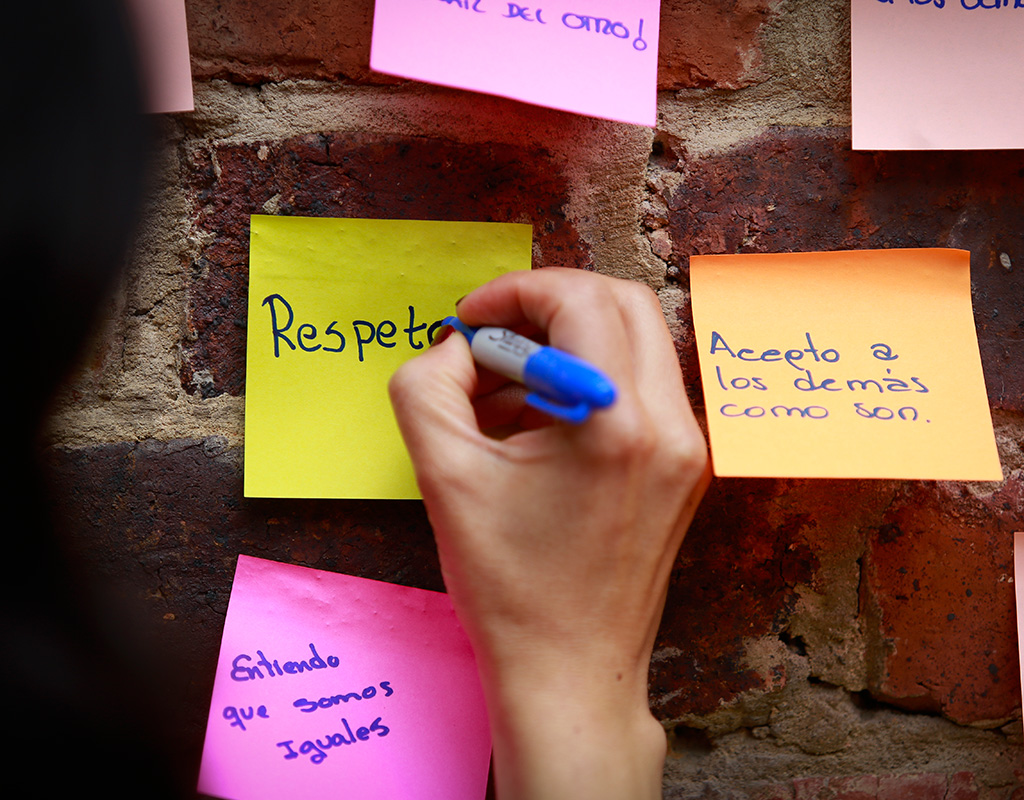 DEL OTRO!
Respeto
Acepto a
los demás
como son.
Entiendo
que somos
Iguales